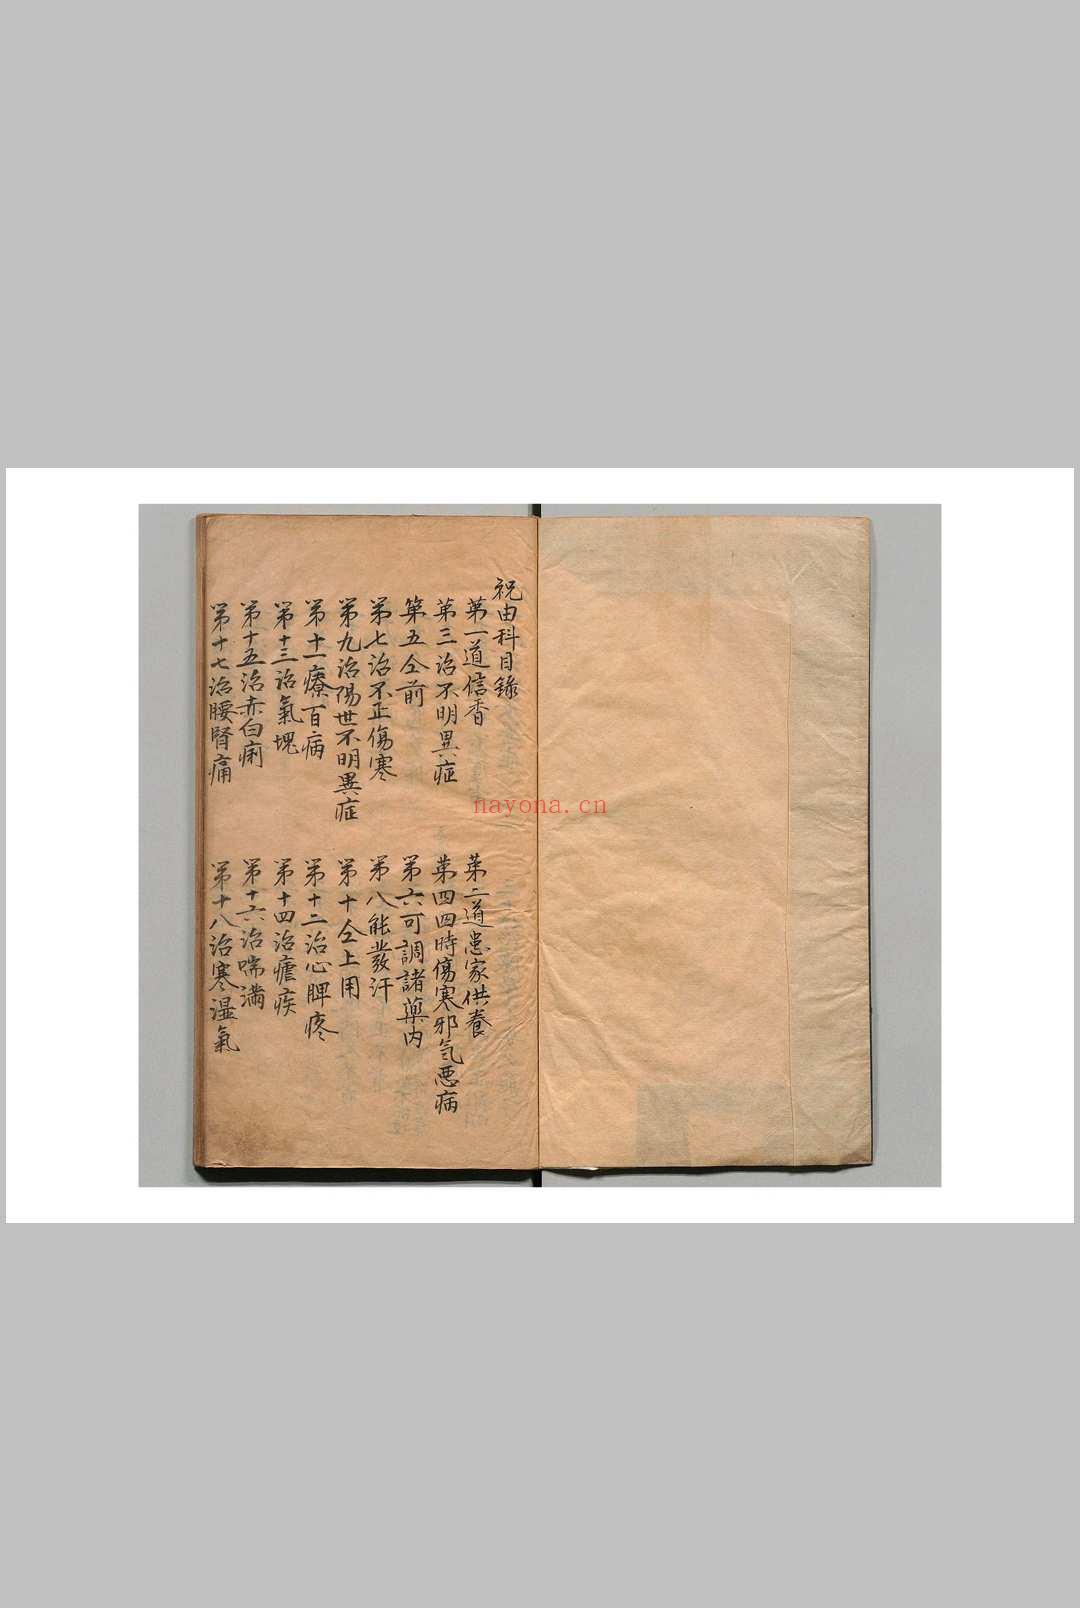 祝由科目錄
第一道信香
第二道患家供養
第三治不明異症
第四四時傷寒邪気悪病
第五仝前
第六可調諸藥内
第七治不正傷寒
第八能發汗
第九治陽世不明異症
第十仝上用
第十一療百病
第十二治心脾疼
第十三治氣塊
第十四治瘧疾
第十五治赤白痢
第十六治喘満
第十七治腰腎痛
第十八治寒湿氣
nayona.cn